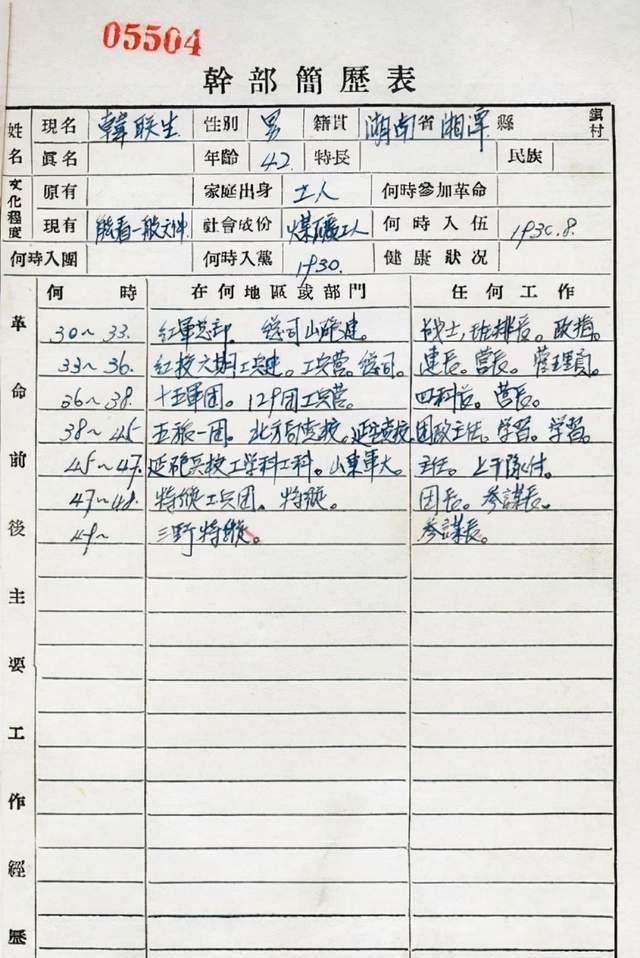 05504
幹部簡歷表
姓名 現名 韓联生 性別 男 籍貫 湖南省湘潭縣 鎮村
真名 年齡 42 特長 民族
文化程度 原有 家庭出身 工人 何時參加革命
現有 能看一般文件 社會成份 煤礦工人 何時入伍 1930.8.
何時入團 何時入黨 1930. 健康狀況
革命前後主要工作經歷 何時 在何地區或部門 任何工作
30~33. 紅軍总部. 总司 战士, 班排長。政指。
33~36. 紅校六期工兵連。工兵营。总司。 連長。营長。管理員。
36~38. 十五軍团。129团工兵营。 四科長。营長。
38~45 五旅一团。北方局党校。延安党校. 团政主任。学習。学習。
45~47. 延砲兵校工学科工科。山東軍大。 主任。上干隊付。
47~48. 特縱工兵团。特縱。 团長。参謀長。
49~ 三野特縱。 参謀長。